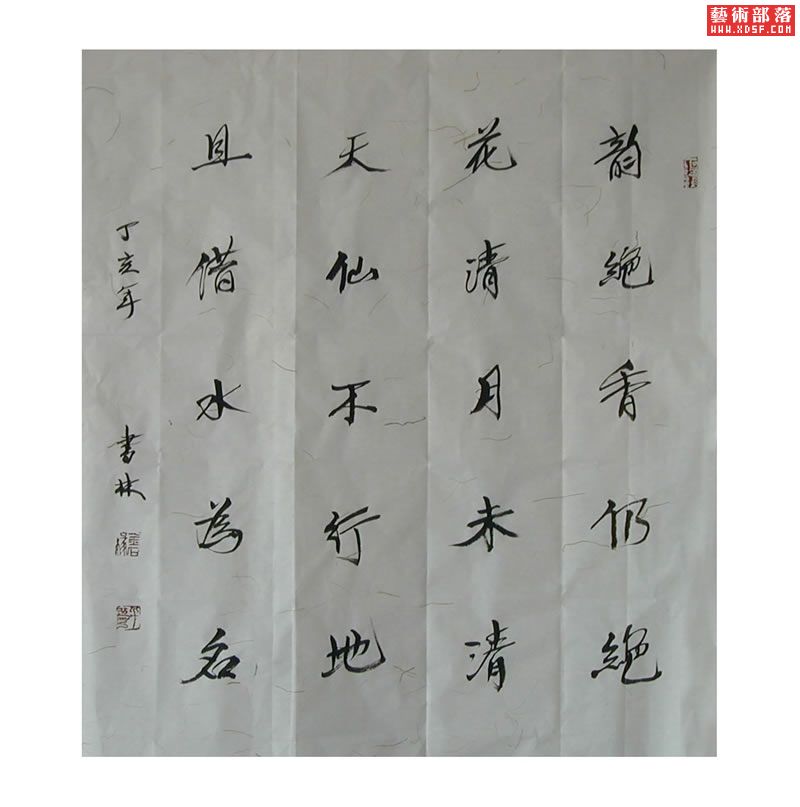 藝術部落
WWW.XDSF.COM
韵絕香仍絕
花清月未清
天仙不行地
且借水為名
丁亥年
書林